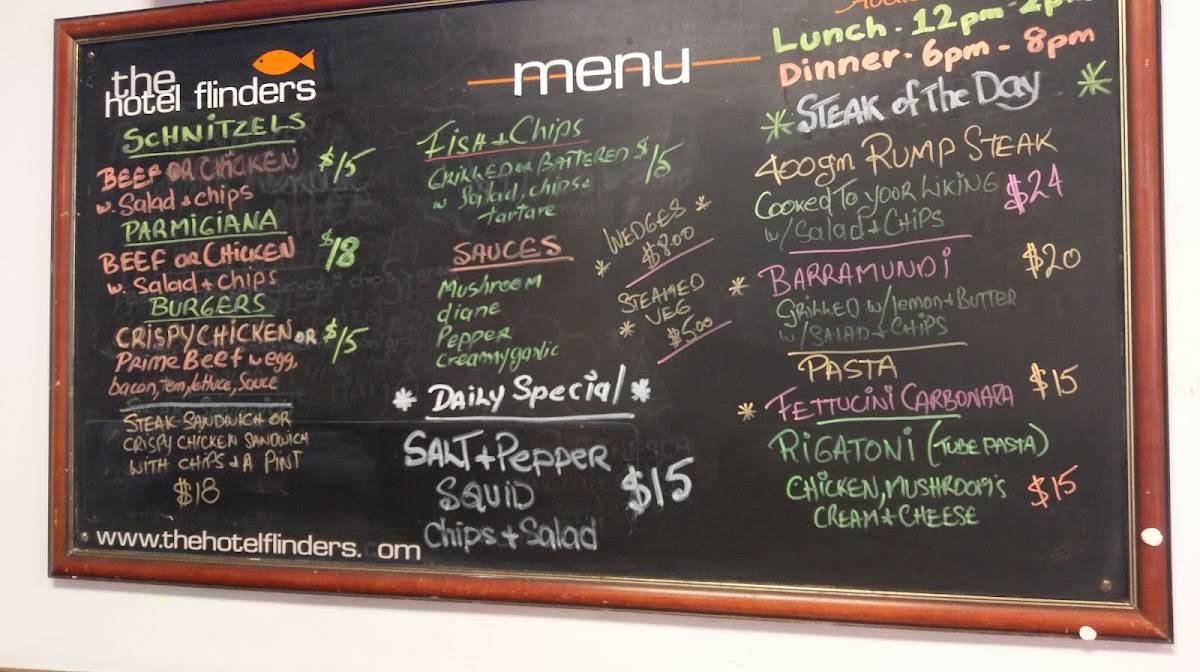 the
hotel flinders
SCHNITZELS
BEEF OR CHICKEN $15
w. Salad + chips
PARMIGIANA
BEEF OR CHICKEN $18
w. Salad + chips
BURGERS
CRISPY CHICKEN OR $15
Prime Beef w egg,
bacon, tom, lettuce, Sauce
STEAK SANDWICH OR
CRISPY CHICKEN SANDWICH
WITH CHIPS + A PINT
$18
www.thehotelflinders. om
menu
FISH + Chips
GRILLED OR BATTERED $15
w Salad, chips +
tartare
SAUCES
Mushroom
diane
Pepper
Creamy garlic
* WEDGES *
$8.00
* STEAMED
VEG *
$5.00
* DAILY Special *
SALT + PEPPER $15
SQUID
Chips + Salad
Lunch - 12pm - 2pm
Dinner - 6pm - 8pm
* STEAK of The Day *
400gm RUMP STEAK
Cooked To your LIKING $24
w/ Salad + CHIPS
* BARRAMUNDI $20
GRILLED w/ lemon + BUTTER
w/ SALAD + CHIPS
PASTA
* FETTUCINI CARBONARA $15
RIGATONI (TUBE PASTA)
CHICKEN, MUSHROOM'S $15
CREAM + CHEESE